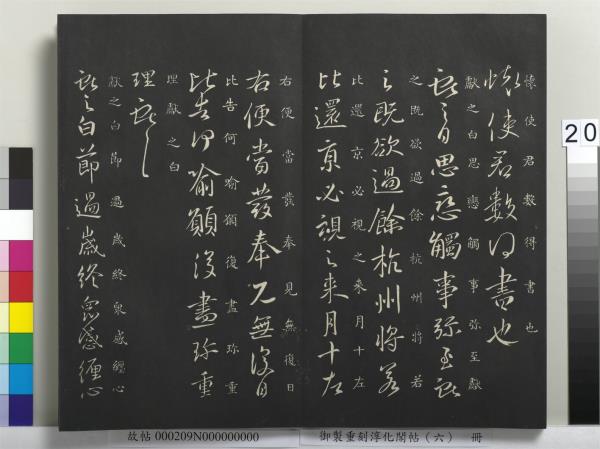 懷使君數得書也
懷使君數得書也
獻之白思戀觸事弥至獻
獻之白思戀觸事弥至獻
之既欲過餘杭州將若
之既欲過餘杭州將若
比還京必視之来月十左
比還京必視之来月十左
右便當發奉見無復日
右便當發奉見無復日
比告何喻復盡珍重
比告何喻願復盡珍重
理獻之白
理獻之白
獻之白節過歲終衆感纏心
獻之白節過歲終衆感纏心
20
故帖 000209N000000000
御製重刻淳化閣帖(六) 冊